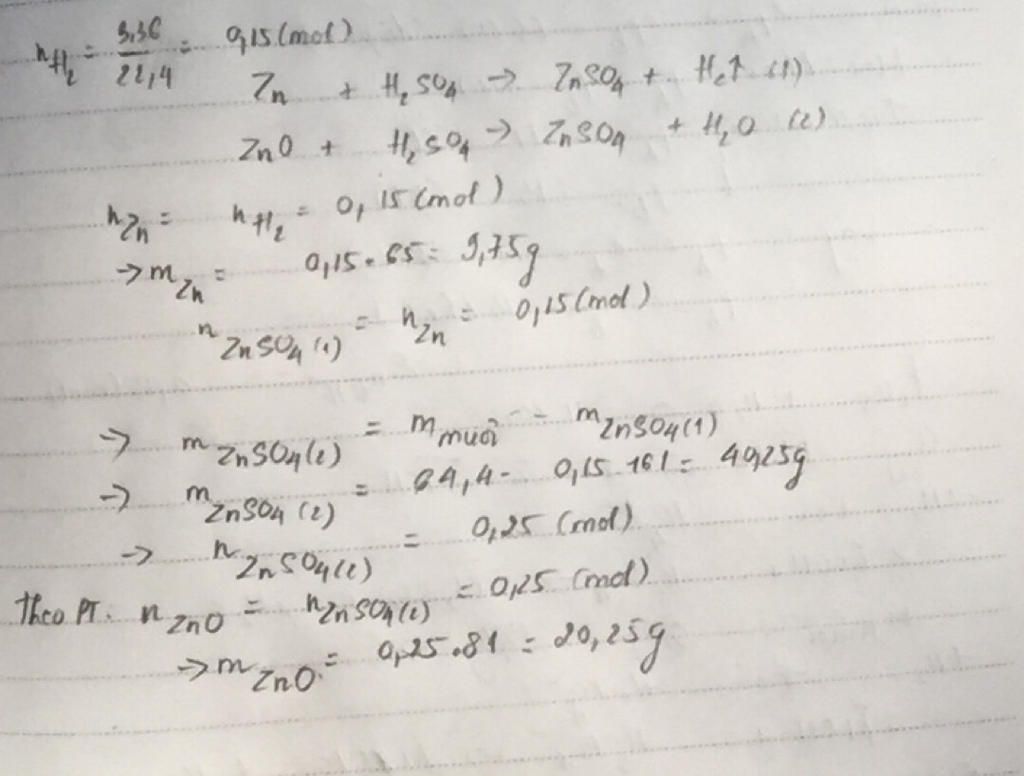 nH₂ = 3,36/22,4 = 0,15 (mol)
Zn + H₂SO₄ → ZnSO₄ + H₂↑ (1)
ZnO + H₂SO₄ → ZnSO₄ + H₂O (2)
nZn = nH₂ = 0,15 (mol)
→ mZn = 0,15.65 = 9,75g
nZnSO₄(1) = nZn = 0,15 (mol)
→ mZnSO₄(2) = mmuối - mZnSO₄(1)
→ mZnSO₄(2) = 64,4 - 0,15.161 = 40,25g
→ nZnSO₄(2) = 0,25 (mol)
Theo PT. nZnO = nZnSO₄(2) = 0,25 (mol)
→ mZnO = 0,25.81 = 20,25g